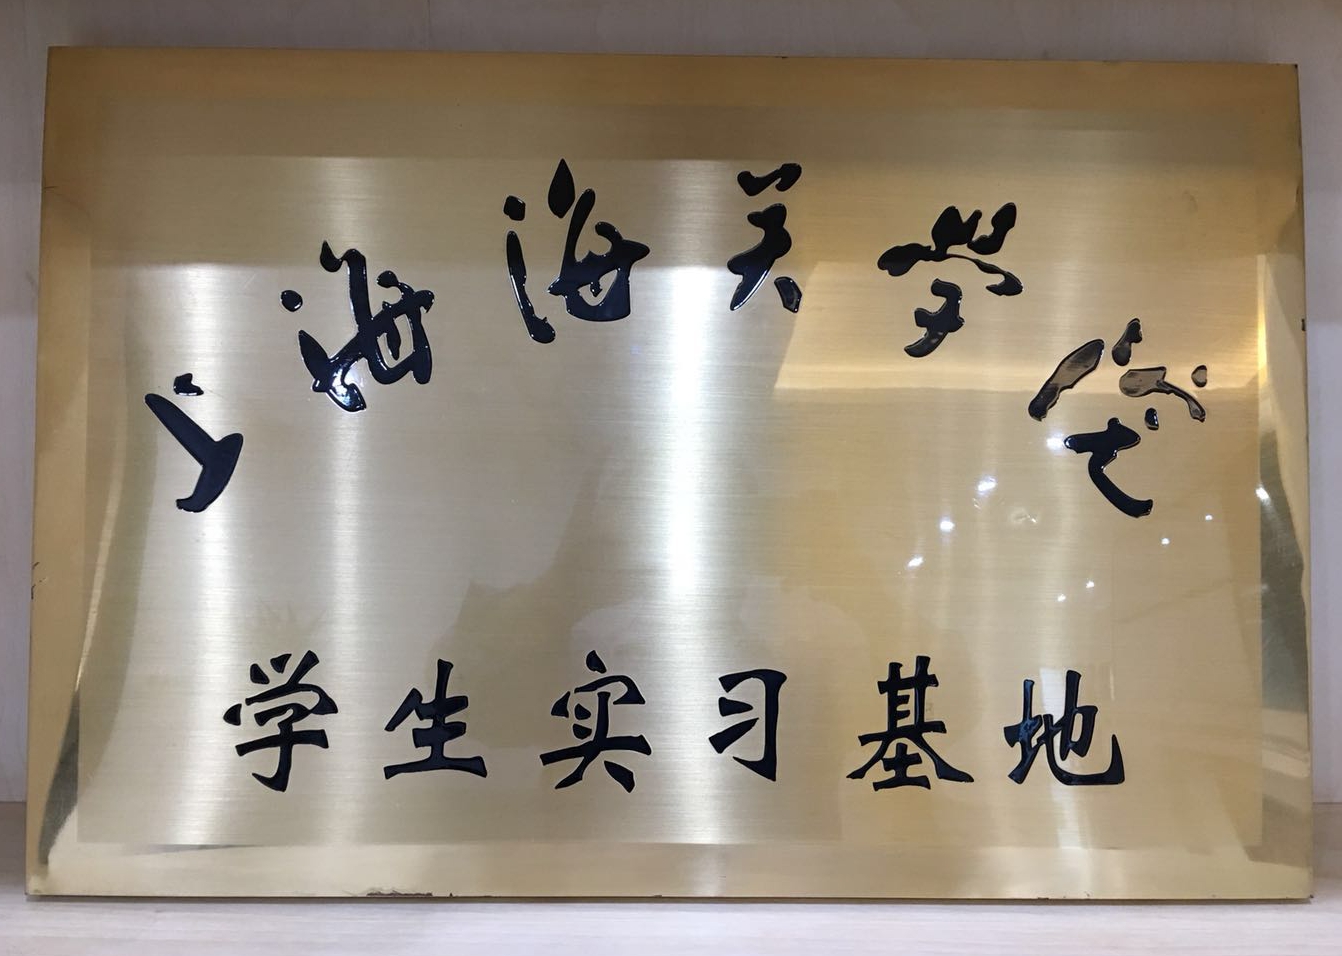 上海海关学院
学生实习基地